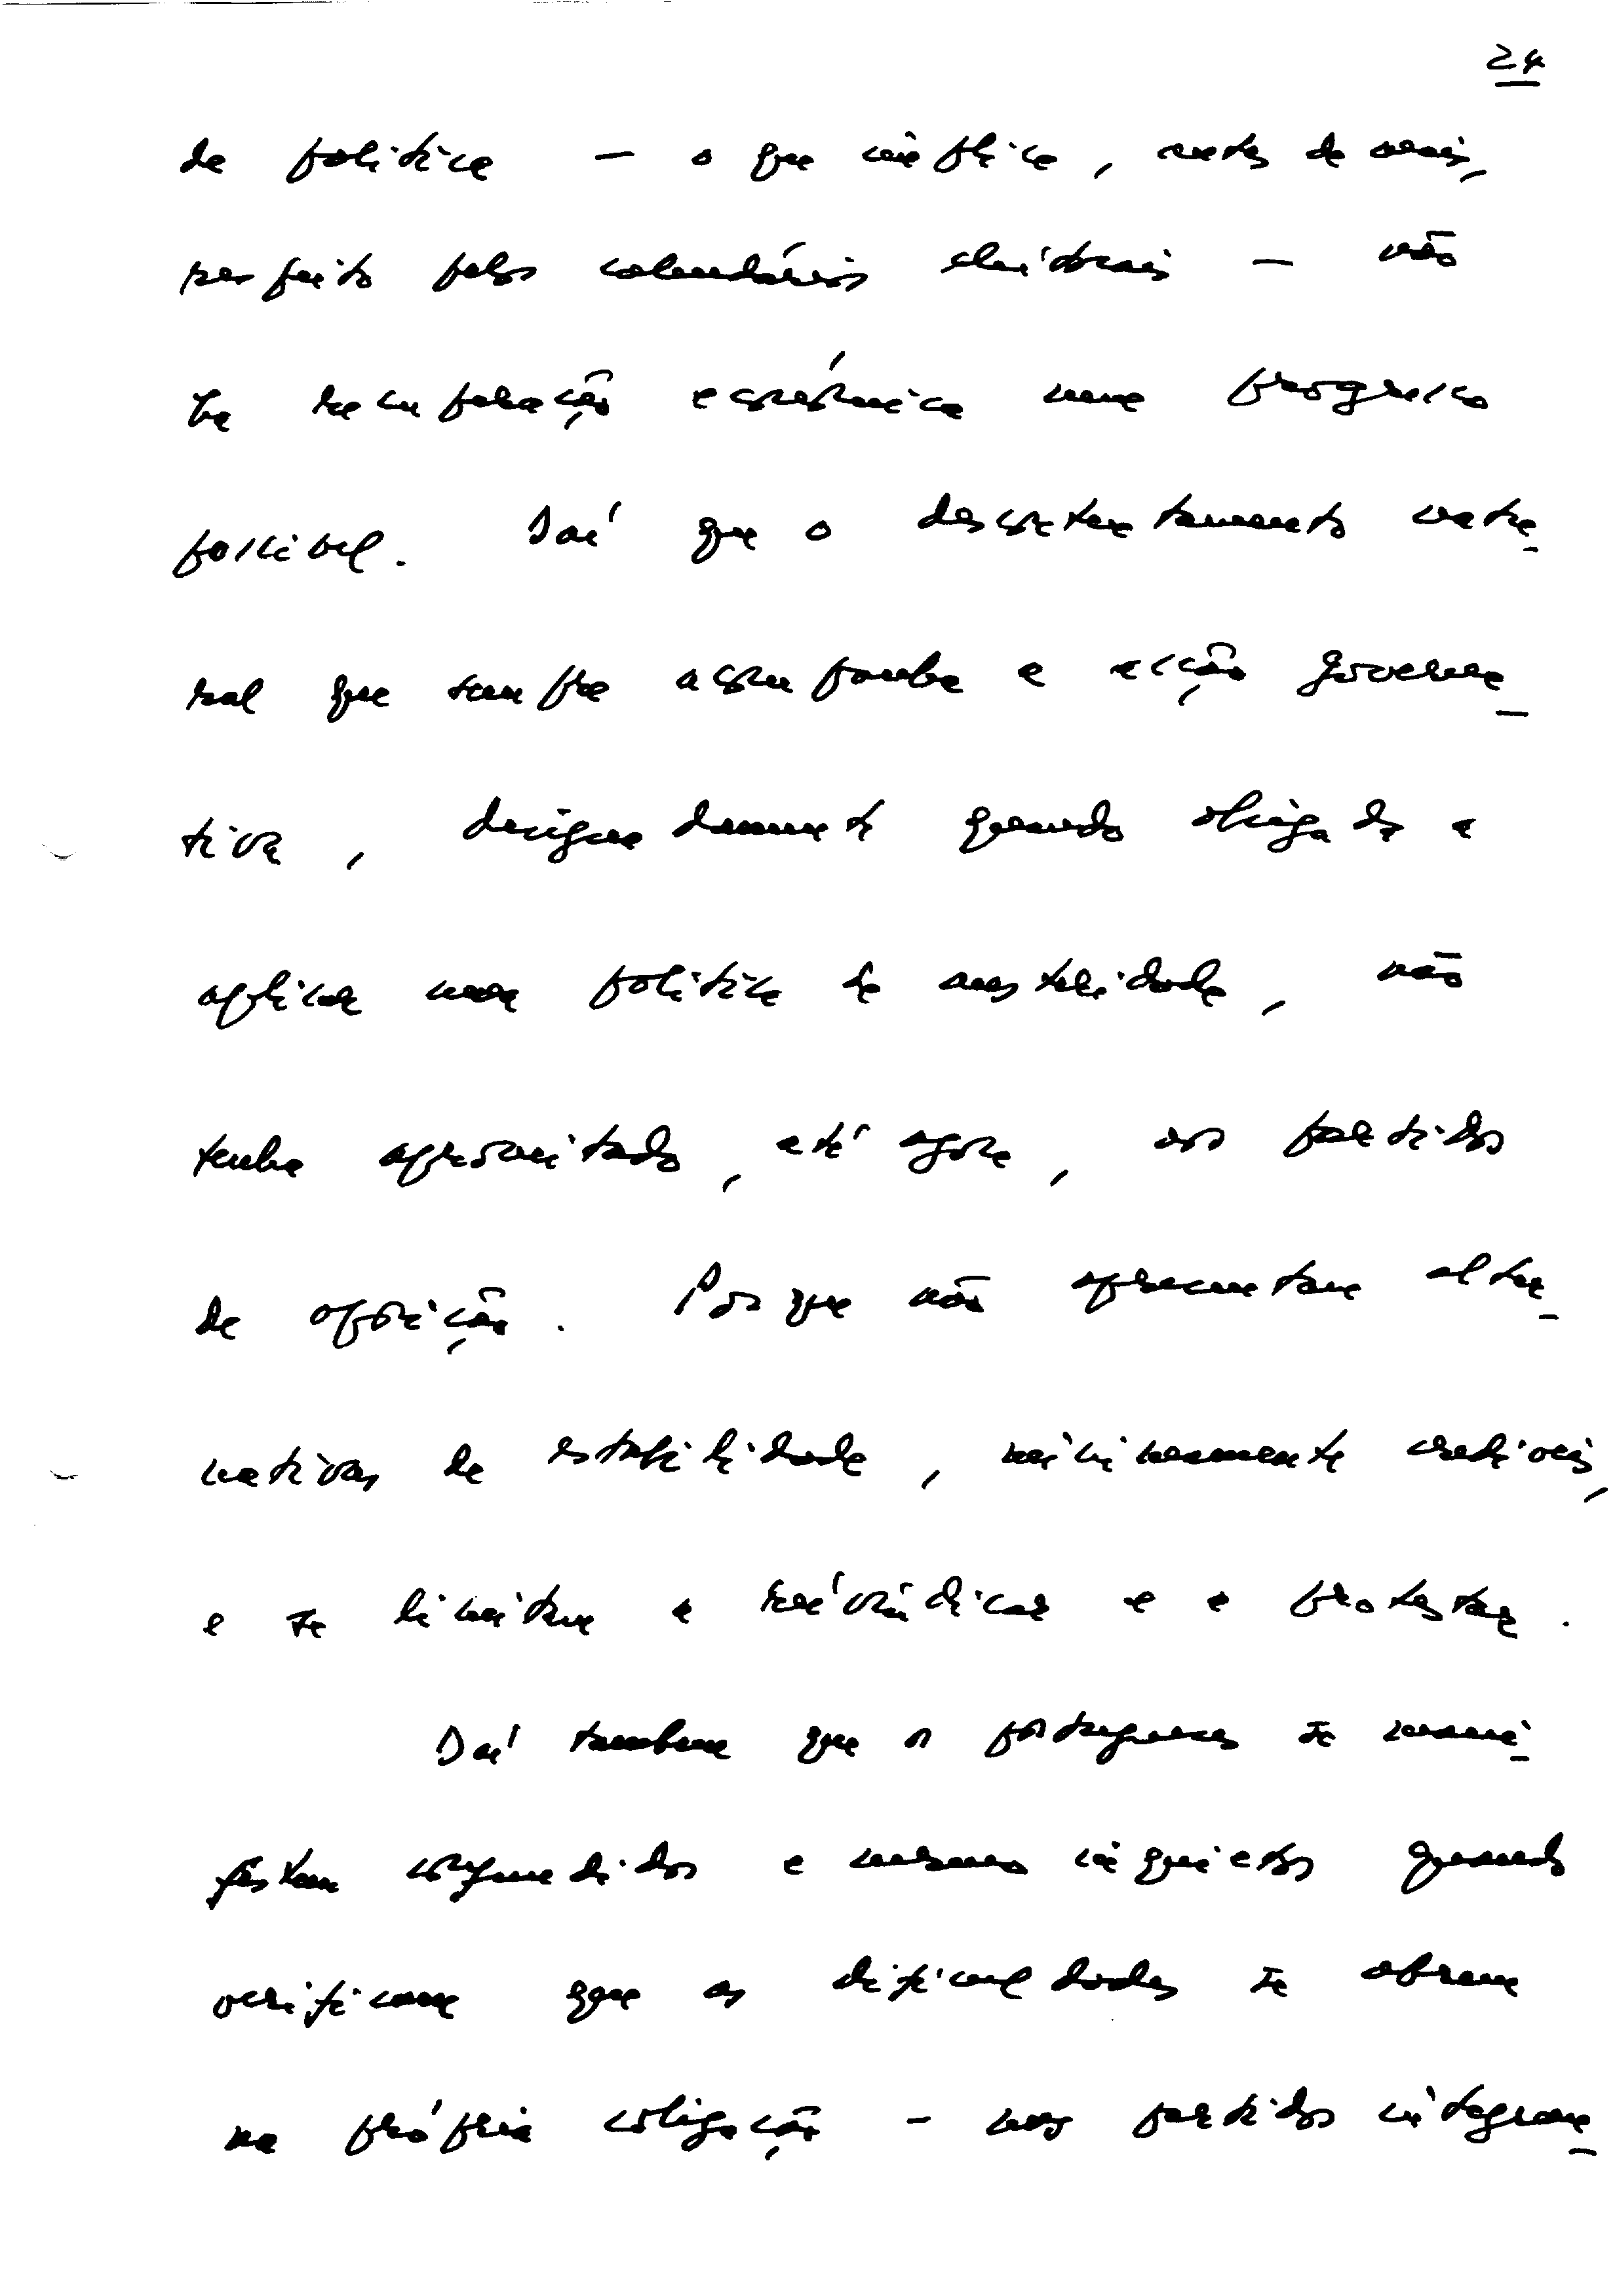 24
de política — o que implica, antes de mais,
respeito pelos calendários eleitorais — não
há recuperação económica nem progresso
possível. Daí que o descontentamento natu-
ral que sempre acompanha a acção governa-
tiva, designadamente quando obrigada a
aplicar uma política de austeridade, não
tenha aproveitado, até agora, aos partidos
de oposição. Porque não apresentam alter-
nativas de estabilidade, minimamente credíveis,
e se limitam a reivindicar e a protestar.
Daí também que os portugueses se mani-
festem confundidos e mesmo inquietos quando
verificam que as dificuldades se abrem
na própria coligação – nos partidos integran-